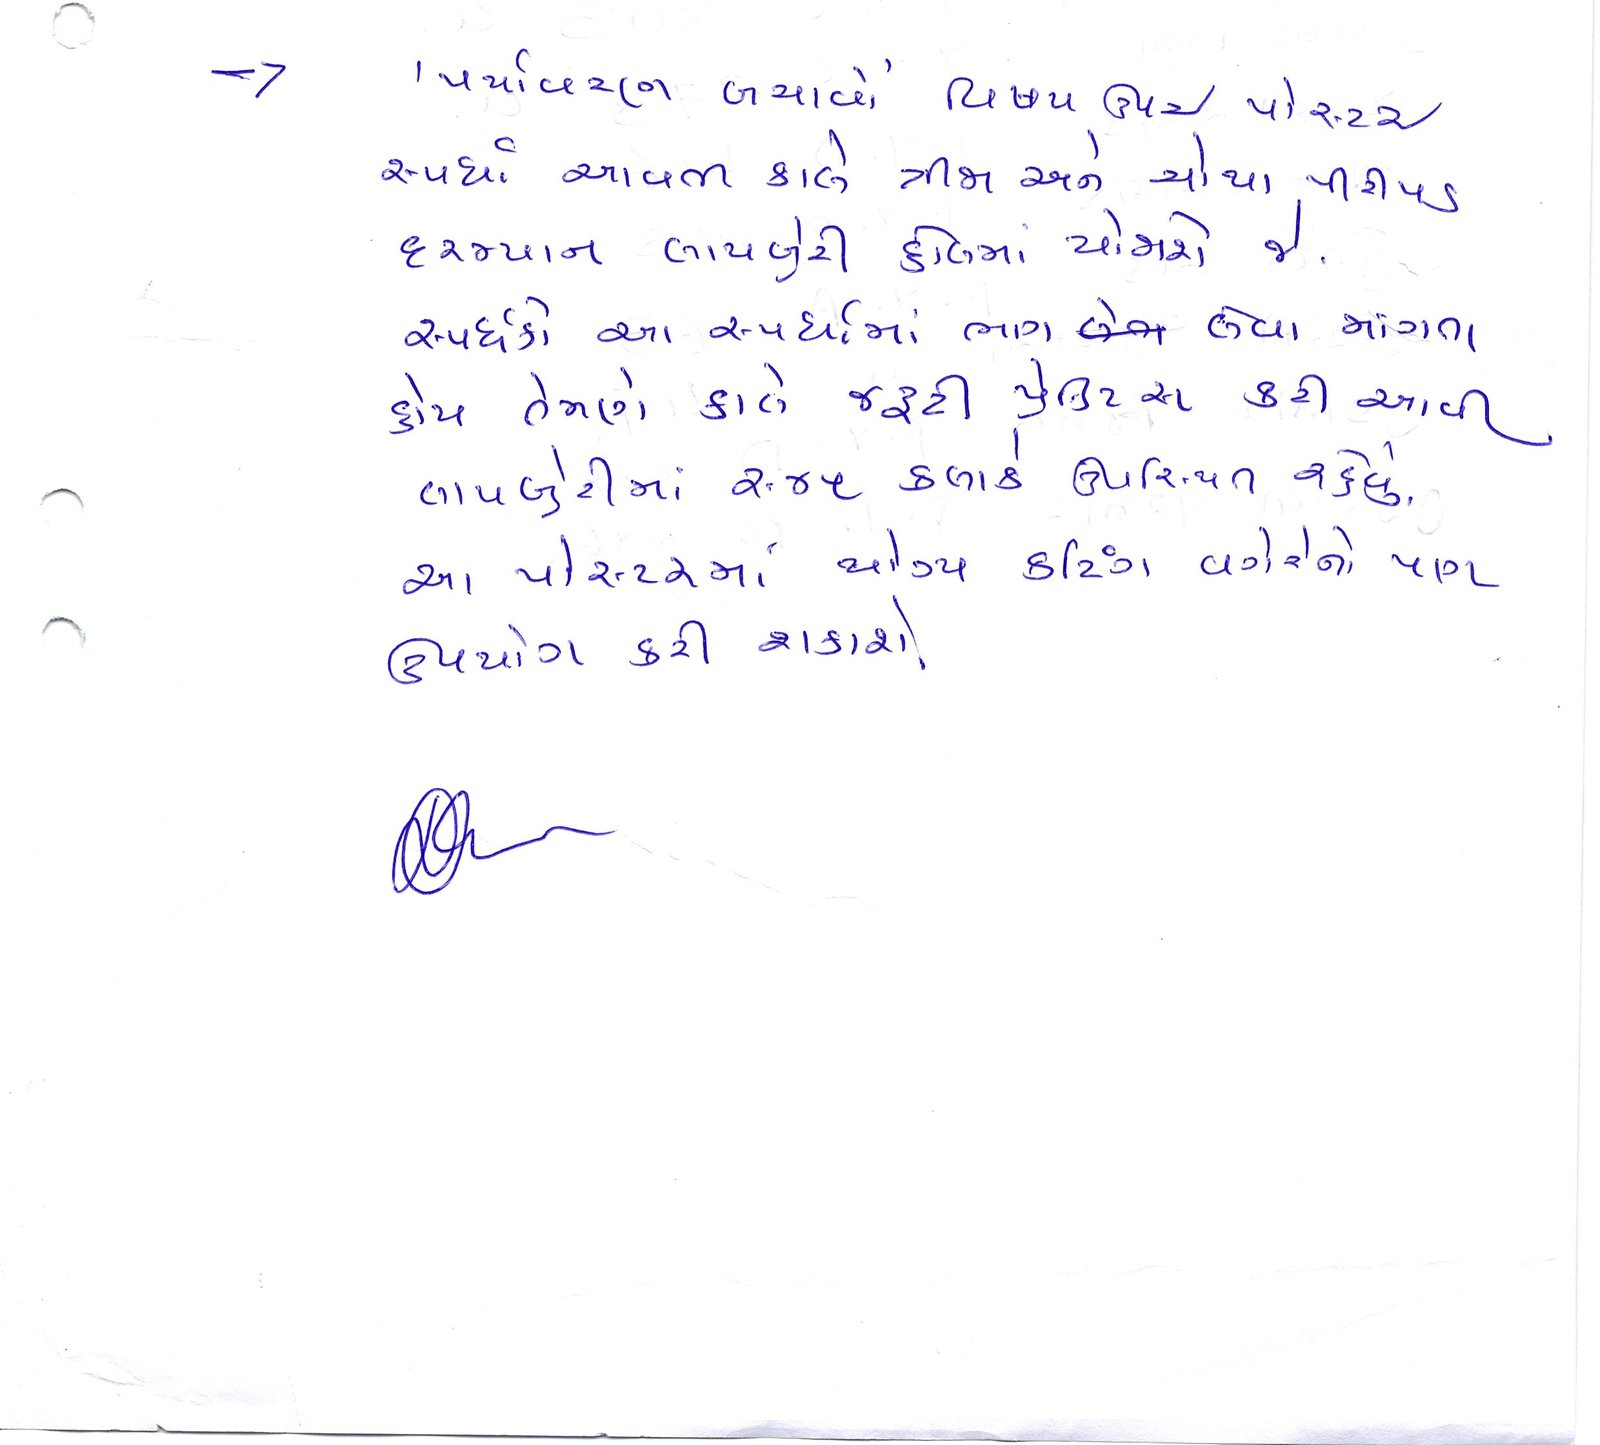 → 'પર્યાવરણ બચાવો' વિષય ઉપર પોસ્ટર
સ્પર્ધા આવતી કાલે ત્રીજા અને ચોથા પીરીયડ
દરમ્યાન લાયબ્રેરી હૉલમાં યોજાશે જે.
સ્પર્ધકો આ સ્પર્ધામાં ભાગ લેવા માંગતા
હોય તેમણે કાલે જરૂરી પ્રેક્ટિસ કરી આવી
લાયબ્રેરીમાં કલાકે ઉપસ્થિત રહેવું.
આ પોસ્ટરમાં યોગ્ય કટિંગ વગેરેનો પણ
ઉપયોગ કરી શકાશે